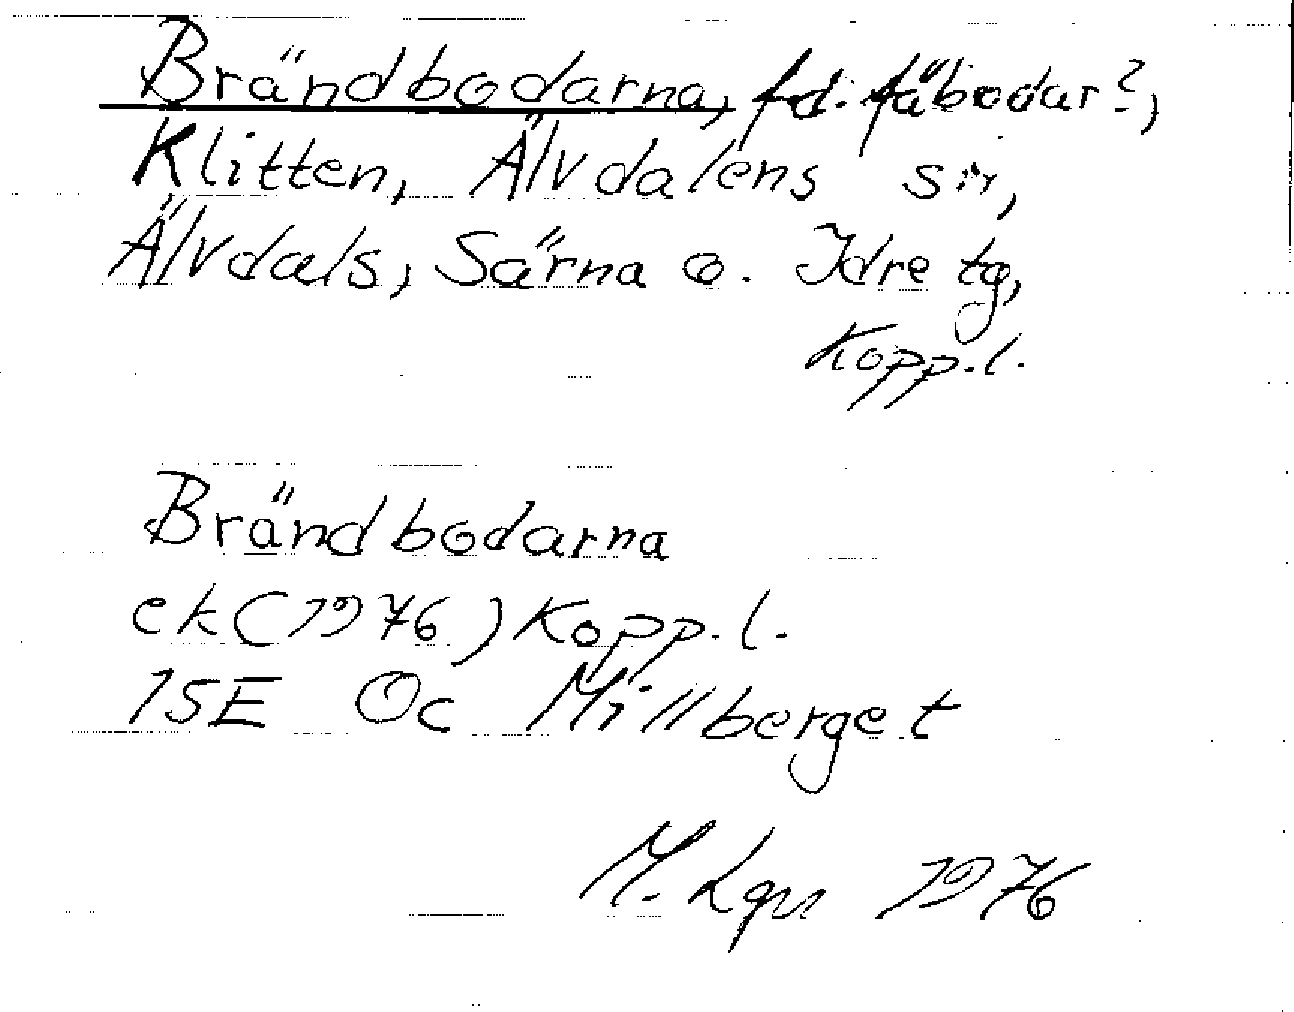 Brändbodarna, f.d. fäbodar?,
Klitten, Älvdalens sn,
Älvdals, Särna o. Idre tg,
Kopp.l.
Brändbodarna
ek (1976) Kopp.l.
15E Oc Millberget
M. Lgn 1976